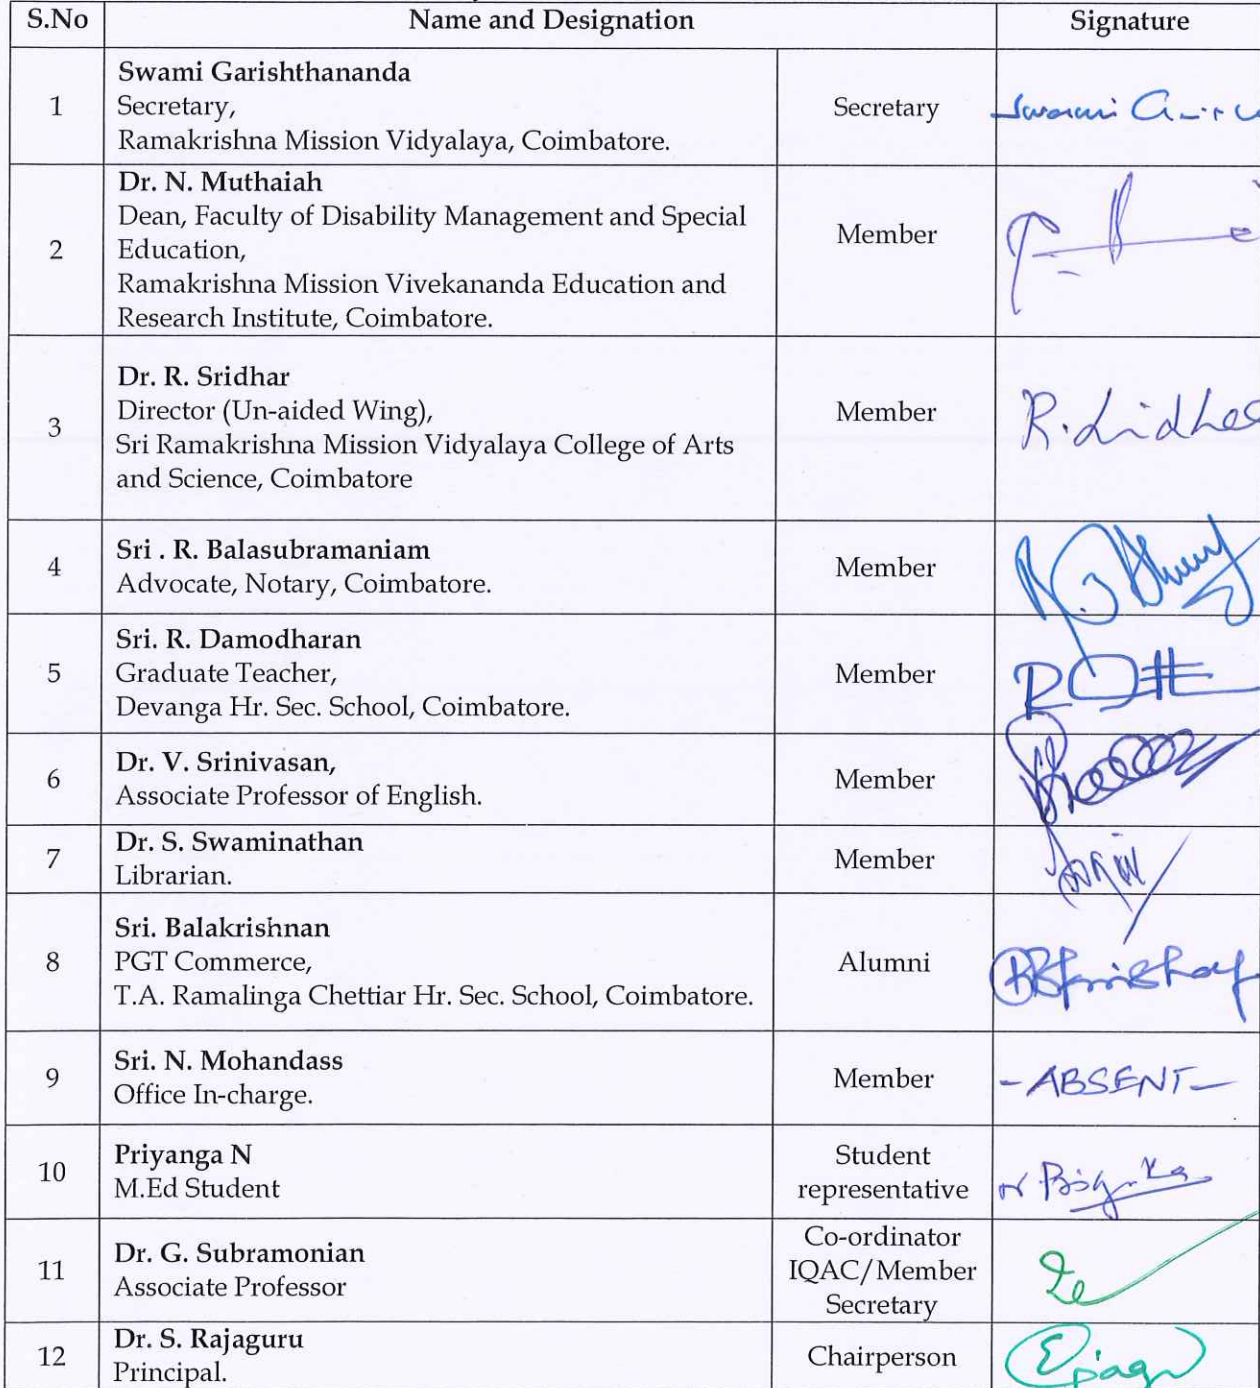 S.No Name and Designation Signature
1 Swami Garishthananda
Secretary,
Ramakrishna Mission Vidyalaya, Coimbatore.
Secretary
Swami
2 Dr. N. Muthaiah
Dean, Faculty of Disability Management and Special
Education,
Ramakrishna Mission Vivekananda Education and
Research Institute, Coimbatore.
Member
3 Dr. R. Sridhar
Director (Un-aided Wing),
Sri Ramakrishna Mission Vidyalaya College of Arts
and Science, Coimbatore
Member
4 Sri . R. Balasubramaniam
Advocate, Notary, Coimbatore.
Member
5 Sri. R. Damodharan
Graduate Teacher,
Devanga Hr. Sec. School, Coimbatore.
Member
6 Dr. V. Srinivasan,
Associate Professor of English.
Member
7 Dr. S. Swaminathan
Librarian.
Member
8 Sri. Balakrishnan
PGT Commerce,
T.A. Ramalinga Chettiar Hr. Sec. School, Coimbatore.
Alumni
9 Sri. N. Mohandass
Office In-charge.
Member
- ABSENT -
10 Priyanga N
M.Ed Student
Student
representative
11 Dr. G. Subramonian
Associate Professor
Co-ordinator
IQAC/Member
Secretary
12 Dr. S. Rajaguru
Principal.
Chairperson